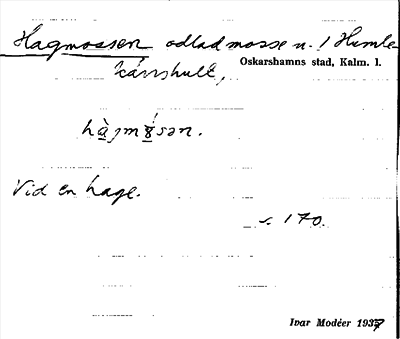 Hagmossen odlad mosse n. / Humle-
kärrshult,
Oskarshamns stad, Kalm. l.
hàgmósən.
Vid en hage.
s. 170.
Ivar Modéer 1937